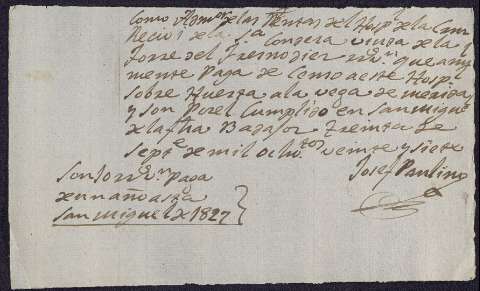 Como Admor de las Rentas del Hospl de la Cruz
Reciví de la Sa Condesa viuda de la
Torre del Fresno diez rrs vn que anual
mente Paga de Censo a este Hospl
sobre Huerta a la vega de merida
y son Por el Cumplido en San Migue
de la fha Badajoz treinta de
Septe de mil ochtos veinte y siete
Josef Paulino
Son 10 rrs vn Paga
de un año asta
San Miguel de 1827